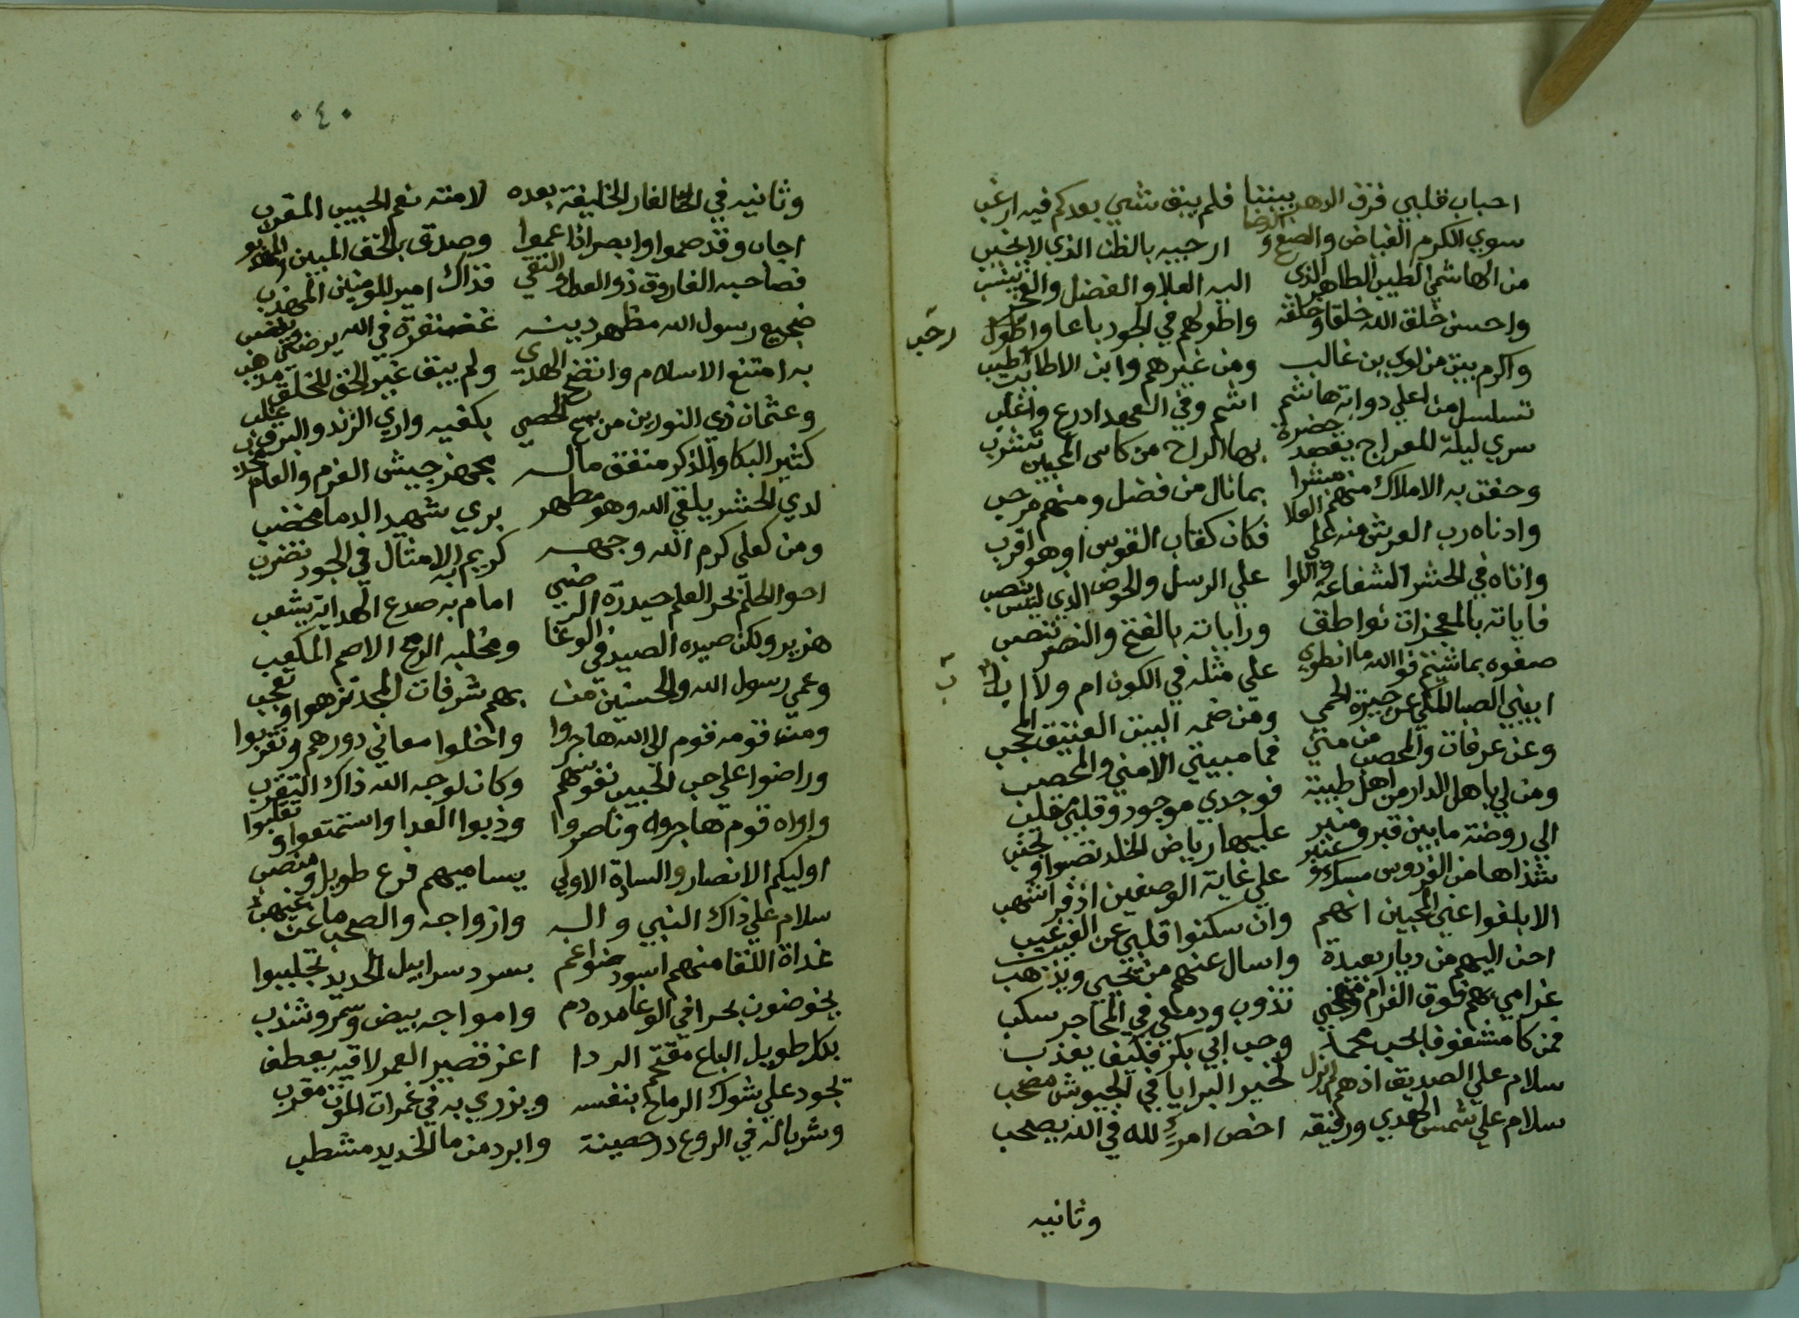 احباب قلبي فرق الدهر بيننا فلم يبق شي بعدكم فيه ارغب
سوي الكرم الفياض والصفح والرضا ارجيه بالظن الذي لا يخيب
من الهاشمي الطيب الطاهر الذي اليه العلا والفضل والفخر ينسب
واحسن خلق الله خلقا وخلقه واطولهم في الجود باعا واطول رحب
واكرم بيت من لوي بن غالب ومن غيرهم وابن الاطايب اطيب
تسلسل من اعلي دوابة هاشم اشم وفي العهد ادرع واغلب
سري ليلة المعراج يقصد حضرة بها الراح من كاس المحبين تشرب
وحفت به الاملاك منهم مبشرا بما نال من فضل ومنهم مرحب
وادناه رب العرش منه علي العلا فكان كقاب القوس او هو اقرب
واتاه في الحشر الشفاعة واللوا علي الرسل والحوض الذي ليس ينضب
فاياته بالمعجزات نواطق وراياته بالفتح والنصر تنصب
صفوه بما شيتم فوالله ما انطوي علي مثله في الكون ام ولا اب
ابيني الصبا المكي عن جيرة الحمي ومن ضمه البيت العتيق المحجب
وعن عرفات والمحصب من مني فما مبيتي الا مني والمحصب
ومن لي باهل الدار من اهل طيبة فوجدي موجود وقلبي مقلب
الي روضة ما بين قبر ومنبر عليها رياض الخلد تصبوا وتجنب
شذاها من الفردوس مسك وعنبر علي غاية الوصفين اذفر اشهب
الا بلغوا عني المحبين انهم وان سكنوا قلبي عن العين غيب
احن اليهم من ديار بعيدة واسال عنهم من يجي ويذهب
غرامي بهم فوق الغرام ومهجتي تذوب ودمعي في المحاجر سكب
فمن كا مشغوفا بحب محمد وحب ابي بكر فكيف يعذب
سلام علي الصديق اذ هم لم انزل لخير البرايا في الجيوش مصحب
سلام علي شمس الهدي ورفيقه اخص امرء لله في الله يصحب
وثانيه
٠٤٠
وثانيه في الغار الخليفة بعده لامته نعم الحبيب المقرب
اجاب وقد صموا وابصر اذا عموا وصدق بالحق المبين وكذبوا
فصاحبه الفاروق ذو العدل والتقي فذاك امير المومنين المهذب
ضجيع رسول الله مظهر دينه غضنفرة في الله يرضي ويغضب
به امتنع الاسلام واتضح الهدي ولم يبق غير الحق للخلق مذهب
وعثمان ذي النورين من سبح الحصي بكفيه واري الزند والبرق خلب
كثير البكا والذكر منفق ماله مجهز جيش العزم والعام مجدب
لدي الحشر يلقي الله وهو مطهر بري شهيد بالدما مخضب
ومن كعلي كرم الله وجهه كريم به الامثال في الجود تضرب
اخو الحلم بحر العلم حيدرة الرضي امام به صدع الهداية يشعب
هزبر ولكن صيده الصيد في الوغا ومخلبه الرمح الاصم المكعب
وعمي رسول الله والحسنين من بهم شرفات المجد تزهوا وتعجب
ومن قومه قوم الي الله هاجروا واخلوا معاني دورهم وتغربوا
وراضوا علي حب الحبيب نفوسهم وكان لوجه الله ذاك التقرب
واواه قوم هاجروه وناصروا وذبوا العدا واستمتعوا وتغلبوا
اوليكم الانصار والسادة الاولي يساميهم فرع طويل ومنصب
سلام علي ذاك النبي واله وازواجه والصحب ما عن غيهب
غداة اللقا منهم اسود ضواغم بسرد سرابيل الحديد تجلببوا
يخوضون بحرا في الوغا مده دم وامواجه بيض وسمر وشذب
بكل طويل الباع مقتحم الردا اعز قصير العمر لاقيه يعطب
تجود علي شوك الرماح بنفسه ويزري به في غمرات الموت مقرب
وشرباله في الروع درحصينة وابرد من ما الحديد مشطب